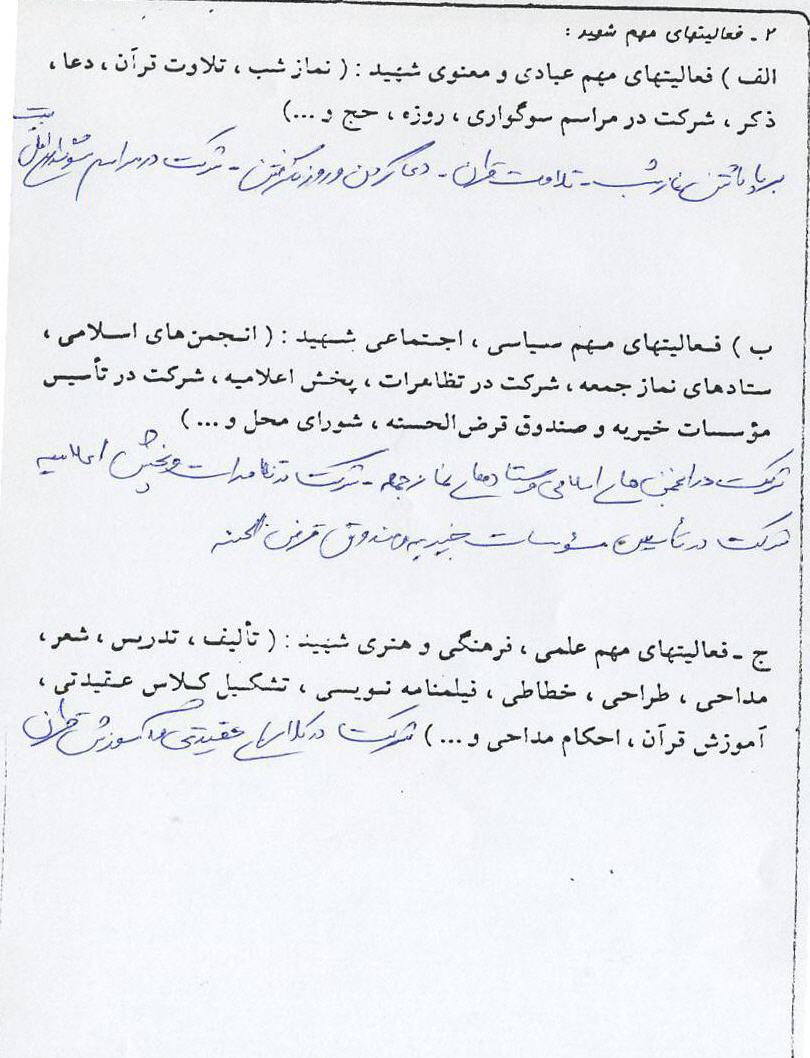 ۲ ـ فعالیتهای مهم شهید :
الف ) فعالیتهای مهم عبادی و معنوی شهید : ( نماز شب ، تلاوت قرآن ، دعا ،
ذکر ، شرکت در مراسم سوگواری ، روزه ، حج و ...)
برپا داشتن نماز شب - تلاوت قرآن - دعا کردن و روزه گرفتن - شرکت در مراسم سوگواری اهل بیت
ب ) فعالیتهای مهم سیاسی ، اجتماعی شهید : ( انجمن‌های اسلامی ،
ستادهای نماز جمعه ، شرکت در تظاهرات ، پخش اعلامیه ، شرکت در تأسیس
مؤسسات خیریه و صندوق قرض‌الحسنه ، شورای محل و ... )
شرکت در انجمن های اسلامی و ستادهای نماز جمعه - شرکت در تظاهرات و پخش اعلامیه
شرکت در تأسیس مؤسسات خیریه و صندوق قرض الحسنه
ج ـ فعالیتهای مهم علمی ، فرهنگی و هنری شهید : ( تألیف ، تدریس ، شعر ،
مداحی ، طراحی ، خطاطی ، فیلمنامه نویسی ، تشکیل کلاس عقیدتی ،
آموزش قرآن ، احکام مداحی و ... ) شرکت در کلاسهای عقیدتی آموزش قرآن